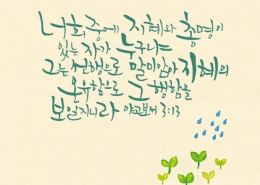 너희 중에 지혜와 총명이
있는 자가 누구냐
그는 선행으로 말미암아 지혜의
온유함으로 그 행함을
보일지니라 야고보서 3:13